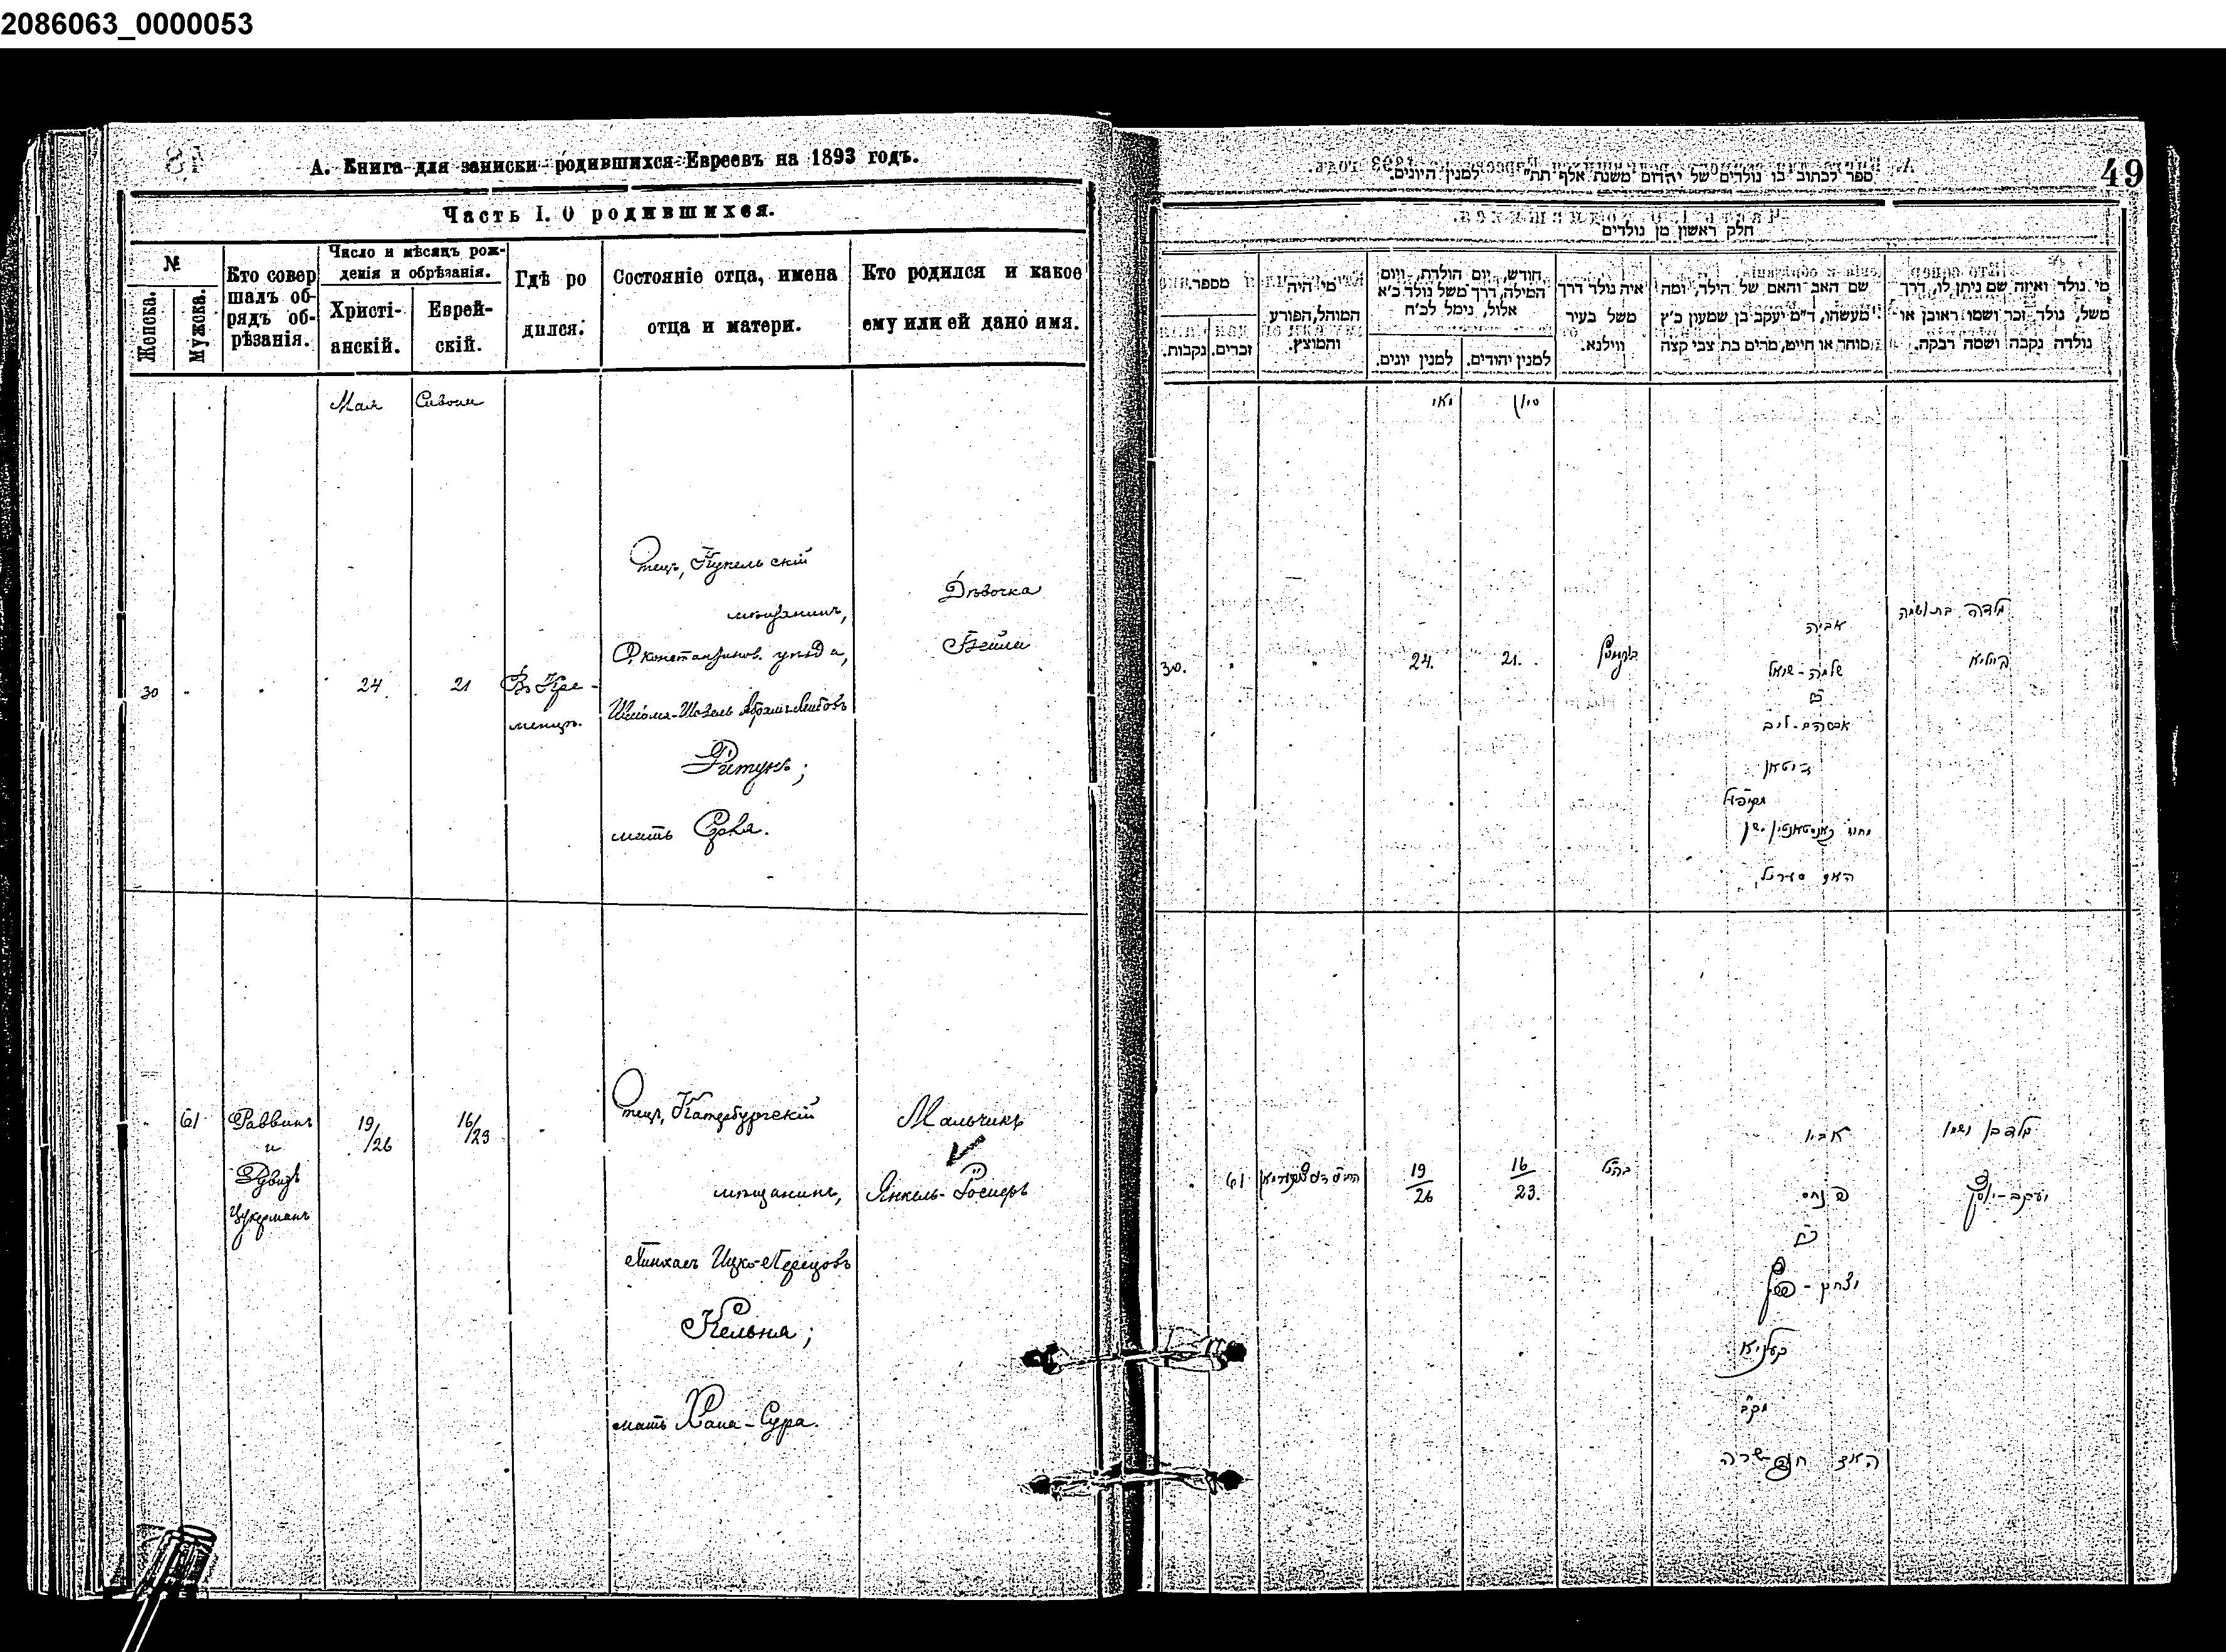 2086063_0000053
А. Книга для записки родившихся Евреевъ на 1893 годъ.
Часть I. О родившихся.
№
Женска.
Мужска.
Кто совер
шалъ об-
рядъ об-
рѣзанія.
Число и мѣсяцъ рож-
денія и обрѣзанія.
Христі-
анскій.
Еврей-
скій.
Гдѣ ро
дился.
Состояніе отца, имена
отца и матери.
Кто родился и какое
ему или ей дано имя.
Май
Сивонъ
30
24
21
Въ Кре-
менцѣ.
Отецъ, Кукельскій
мѣщанинъ,
Шлёма-Шовель Абрамъ-Лейбовъ
Ритунъ;
мать Сурка.
Дѣвочка
Бейла
61
Раввинъ
и
Цукерманъ
19/26
16/23
Отецъ, Катербургскій
мѣщанинъ,
Пинхасъ Ицко-Перецовъ
Кельня;
мать Хана-Сура.
Мальчикъ
Янкель-
49
ספר לכתוב בו נולדים של יהודים משנת אלף תת" למנין היונים.
חלק ראשון מן נולדים
מספר.
נקבות.
זכרים.
מי היה
המוהל, הפורע
והמוצץ.
חודש, יום הולדת, ויום
המילה, דרך משל נולד כ'א
אלול, נימל לכ'ח
למנין יונים.
למנין יהודים.
איה נולד דרך
משל בעיר
ווילנא.
שם האב והאם של הילד, ומה
מעשהו, ד"מ יעקב בן שמעון כ'ץ
סוחר או חייט, מרים בת צבי קצה
מי נולד ואיזה שם ניתן לו, דרך
משל, נולד זכר ושמו ראובן או
נולדה נקבה ושמה רבקה.
מאי
סיון
30.
24.
21.
אביה
שלמה-שואל
אברהם-ליב
ילדה בת ושמה
ביילא
61
19/26
16/23.
אביו
פנחס
יצחק-פרץ
קעלניא
האם חנה שרה
ילד בן ושמו
יעקב-יוסף